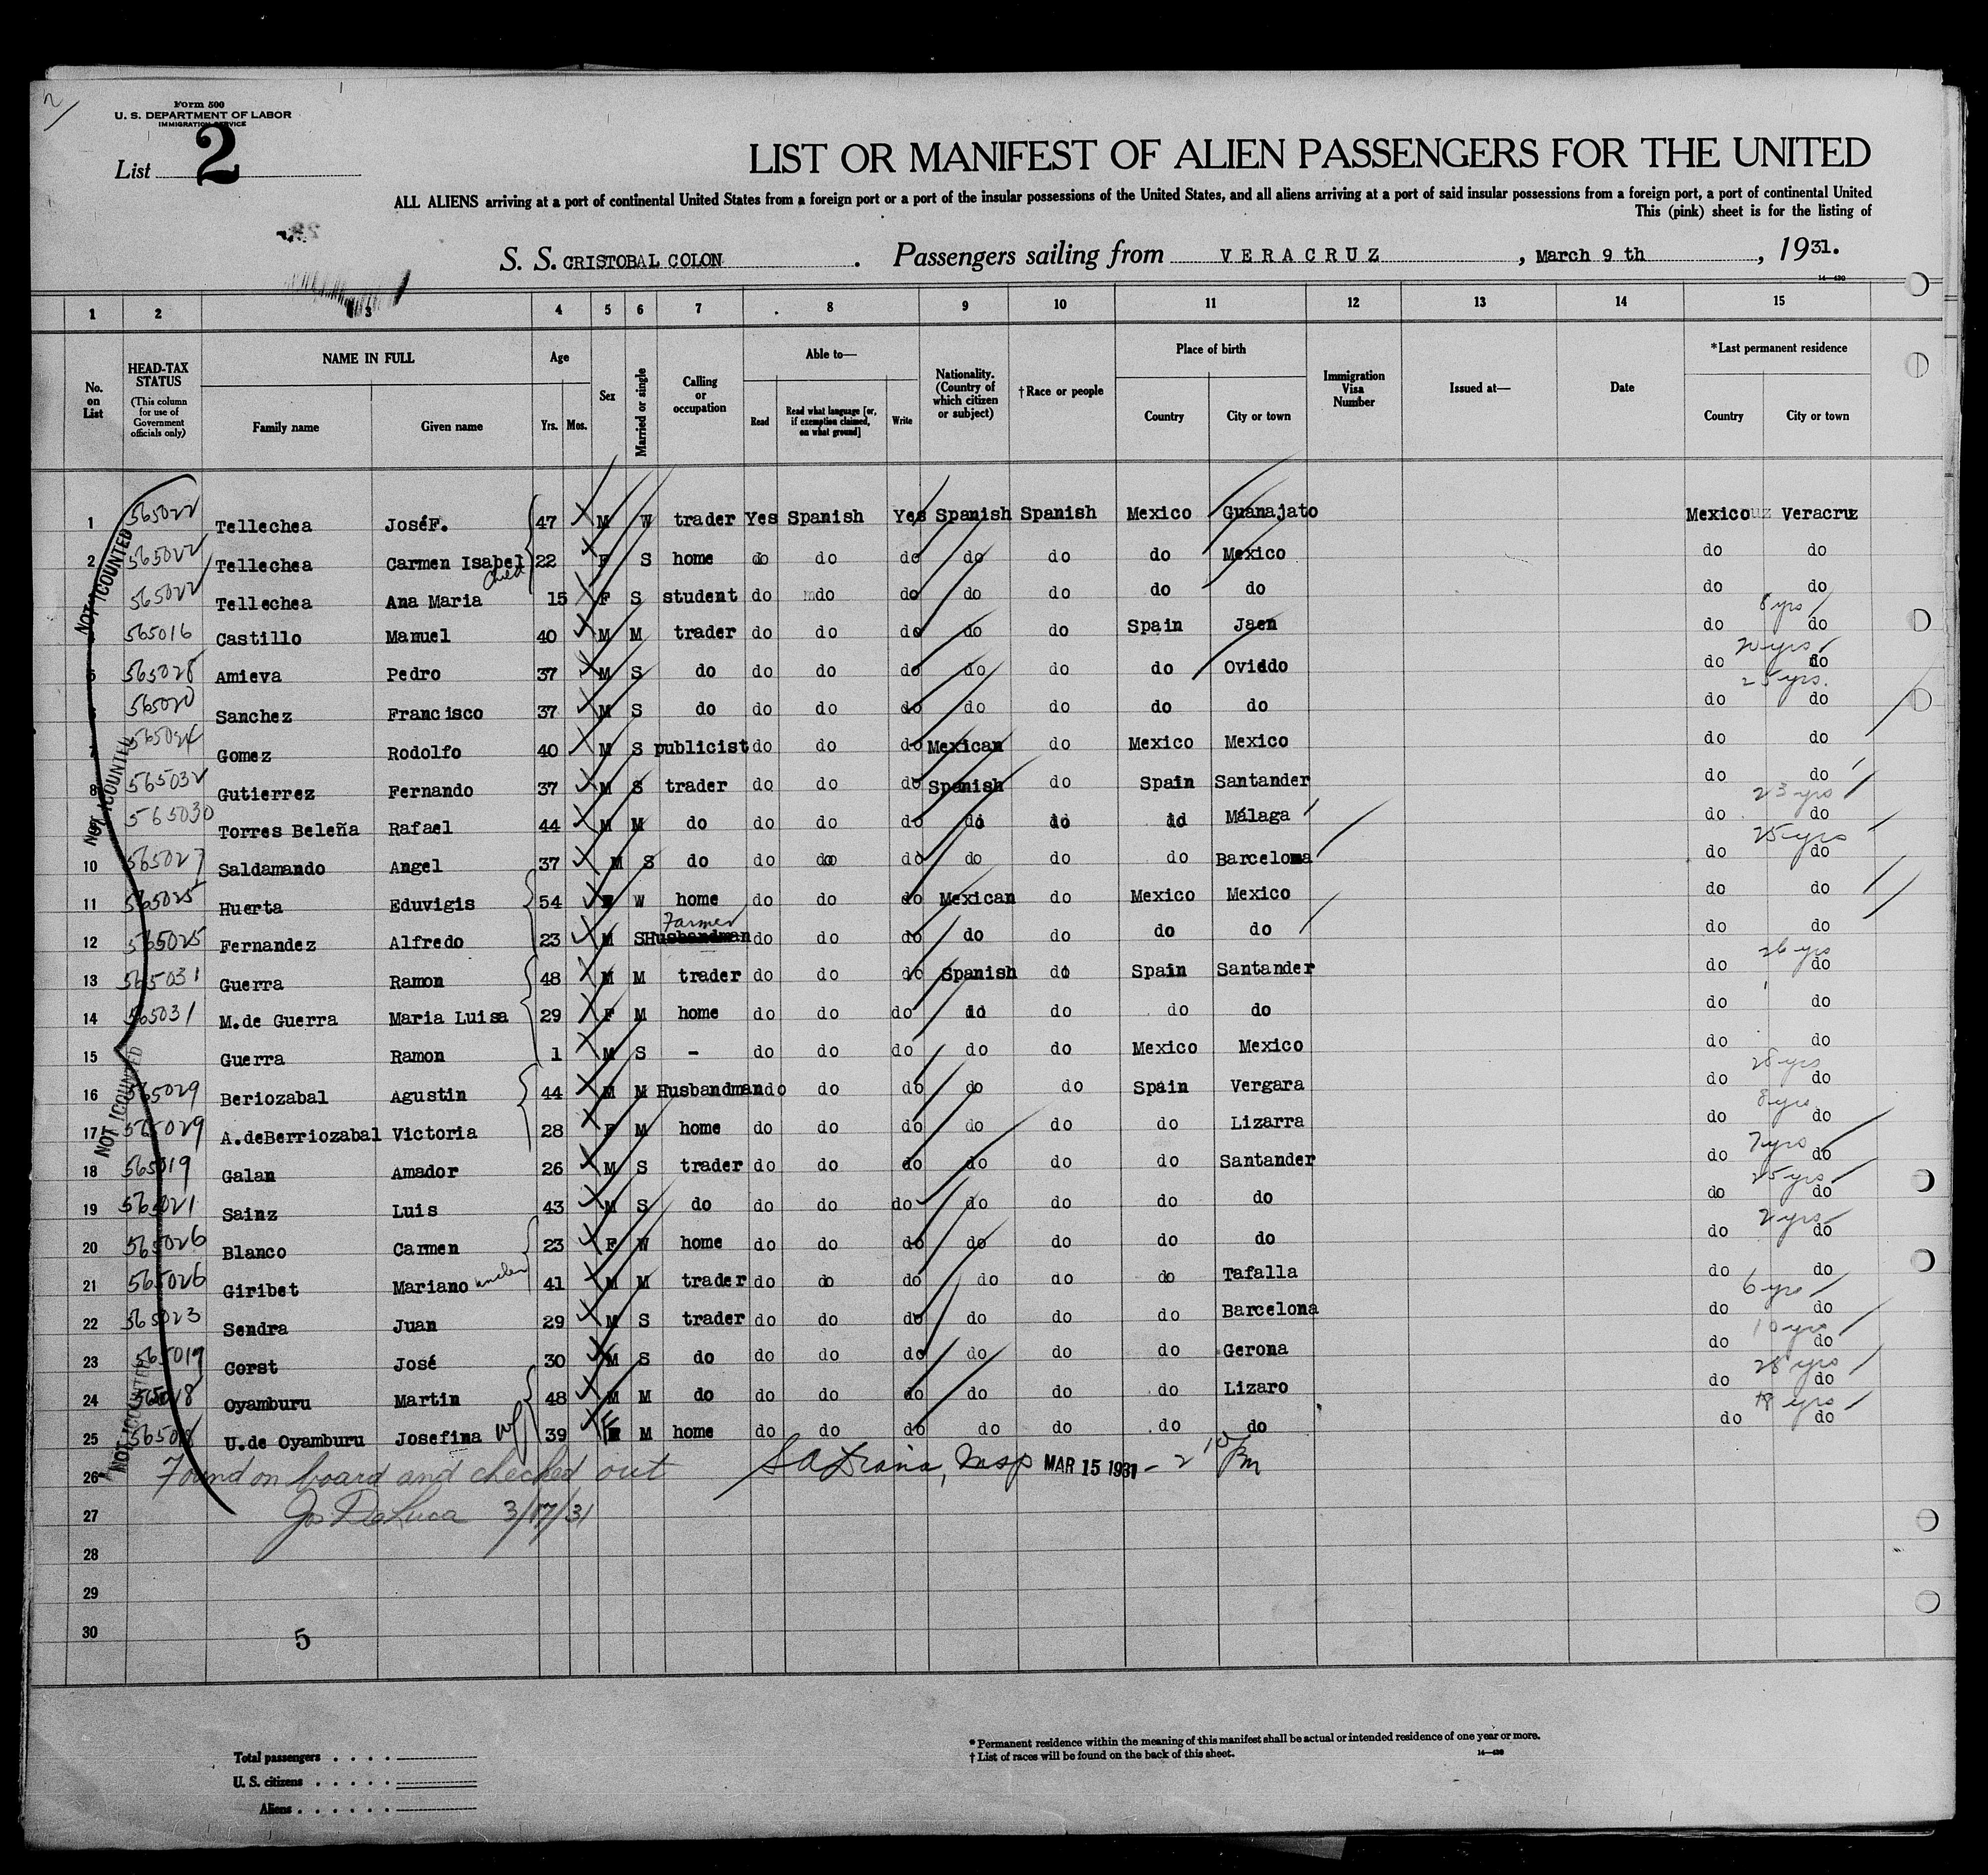 2/
Form 500
U. S. DEPARTMENT OF LABOR
IMMIGRATION SERVICE
List 2
LIST OR MANIFEST OF ALIEN PASSENGERS FOR THE UNITED
ALL ALIENS arriving at a port of continental United States from a foreign port or a port of the insular possessions of the United States, and all aliens arriving at a port of said insular possessions from a foreign port, a port of continental United
This (pink) sheet is for the listing of
S. S. CRISTOBAL COLON . Passengers sailing from VERACRUZ , March 9 th , 1931.
14—430
1 2 3 4 5 6 7 8 9 10 11 12 13 14 15
No. on List
HEAD-TAX STATUS (This column for use of Government officials only)
NAME IN FULL
Family name Given name
Age
Yrs. Mos.
Sex
Married or single
Calling or occupation
Able to—
Read Read what language [or, if exemption claimed, on what ground] Write
Nationality. (Country of which citizen or subject)
†Race or people
Place of birth
Country City or town
Immigration Visa Number
Issued at—
Date
*Last permanent residence
Country City or town
1 565022 Tellechea JoséF. 47 M W trader Yes Spanish Yes Spanish Spanish Mexico Guanajato Mexico Veracruz
2 565022 Tellechea Carmen Isabel 22 F S home do do do do do do Mexico do do
565022 Tellechea Ana Maria child 15 F S student do do do do do do do do do
565016 Castillo Manuel 40 M M trader do do do do do Spain Jaen do 8 yrs do
565028 Amieva Pedro 37 M S do do do do do do do Oviedo do 20 yrs do
565020 Sanchez Francisco 37 M S do do do do do do do do do 25 yrs. do
565024 Gomez Rodolfo 40 M S publicist do do do Mexican do Mexico Mexico do do
8 565032 Gutierrez Fernando 37 M S trader do do do Spanish do Spain Santander do do
9 565030 Torres Beleña Rafael 44 M M do do do do do do do Málaga do 23 yrs do
10 565027 Saldamando Angel 37 M S do do do do do do do Barcelona do 25 yrs do
11 565025 Huerta Eduvigis 54 F W home do do do Mexican do Mexico Mexico do do
12 565025 Fernandez Alfredo 23 M S Husbandman Farmer do do do do do do do do do
13 565031 Guerra Ramon 48 M M trader do do do Spanish do Spain Santander do 26 yrs do
14 565031 M.de Guerra Maria Luisa 29 F M home do do do do do do do do do
15 Guerra Ramon 1 M S - do do do do do Mexico Mexico do do
16 565029 Beriozabal Agustin 44 M M Husbandman do do do do do Spain Vergara do 28 yrs do
17 565029 A.deBerriozabal Victoria 28 F M home do do do do do do Lizarra do 8 yrs do
18 565019 Galan Amador 26 M S trader do do do do do do Santander do 7 yrs do
19 565021 Sainz Luis 43 M S do do do do do do do do do 25 yrs do
20 565026 Blanco Carmen 23 F W home do do do do do do do do 2 yrs do
21 565026 Giribet Mariano uncle 41 M M trader do do do do do do Tafalla do do
22 565023 Sendra Juan 29 M S trader do do do do do do Barcelona do 6 yrs do
23 565019 Corst José 30 M S do do do do do do do Gerona do 10 yrs do
24 565018 Oyamburu Martin 48 M M do do do do do do do Lizaro do 28 yrs do
25 U.de Oyamburu Josefina wf 39 F M home do do do do do do do do 18 yrs do
NOT COUNTED
NOT COUNTED
NOT COUNTED
NOT COUNTED
26 Found on board and checked out Insp MAR 15 1931 - 2 10 Pm
27 Jos DeLuca 3/17/31
28
29
30
5
Total passengers . . . .
U. S. citizens . . . . .
Aliens . . . . . .
* Permanent residence within the meaning of this manifest shall be actual or intended residence of one year or more.
† List of races will be found on the back of this sheet.
14—430